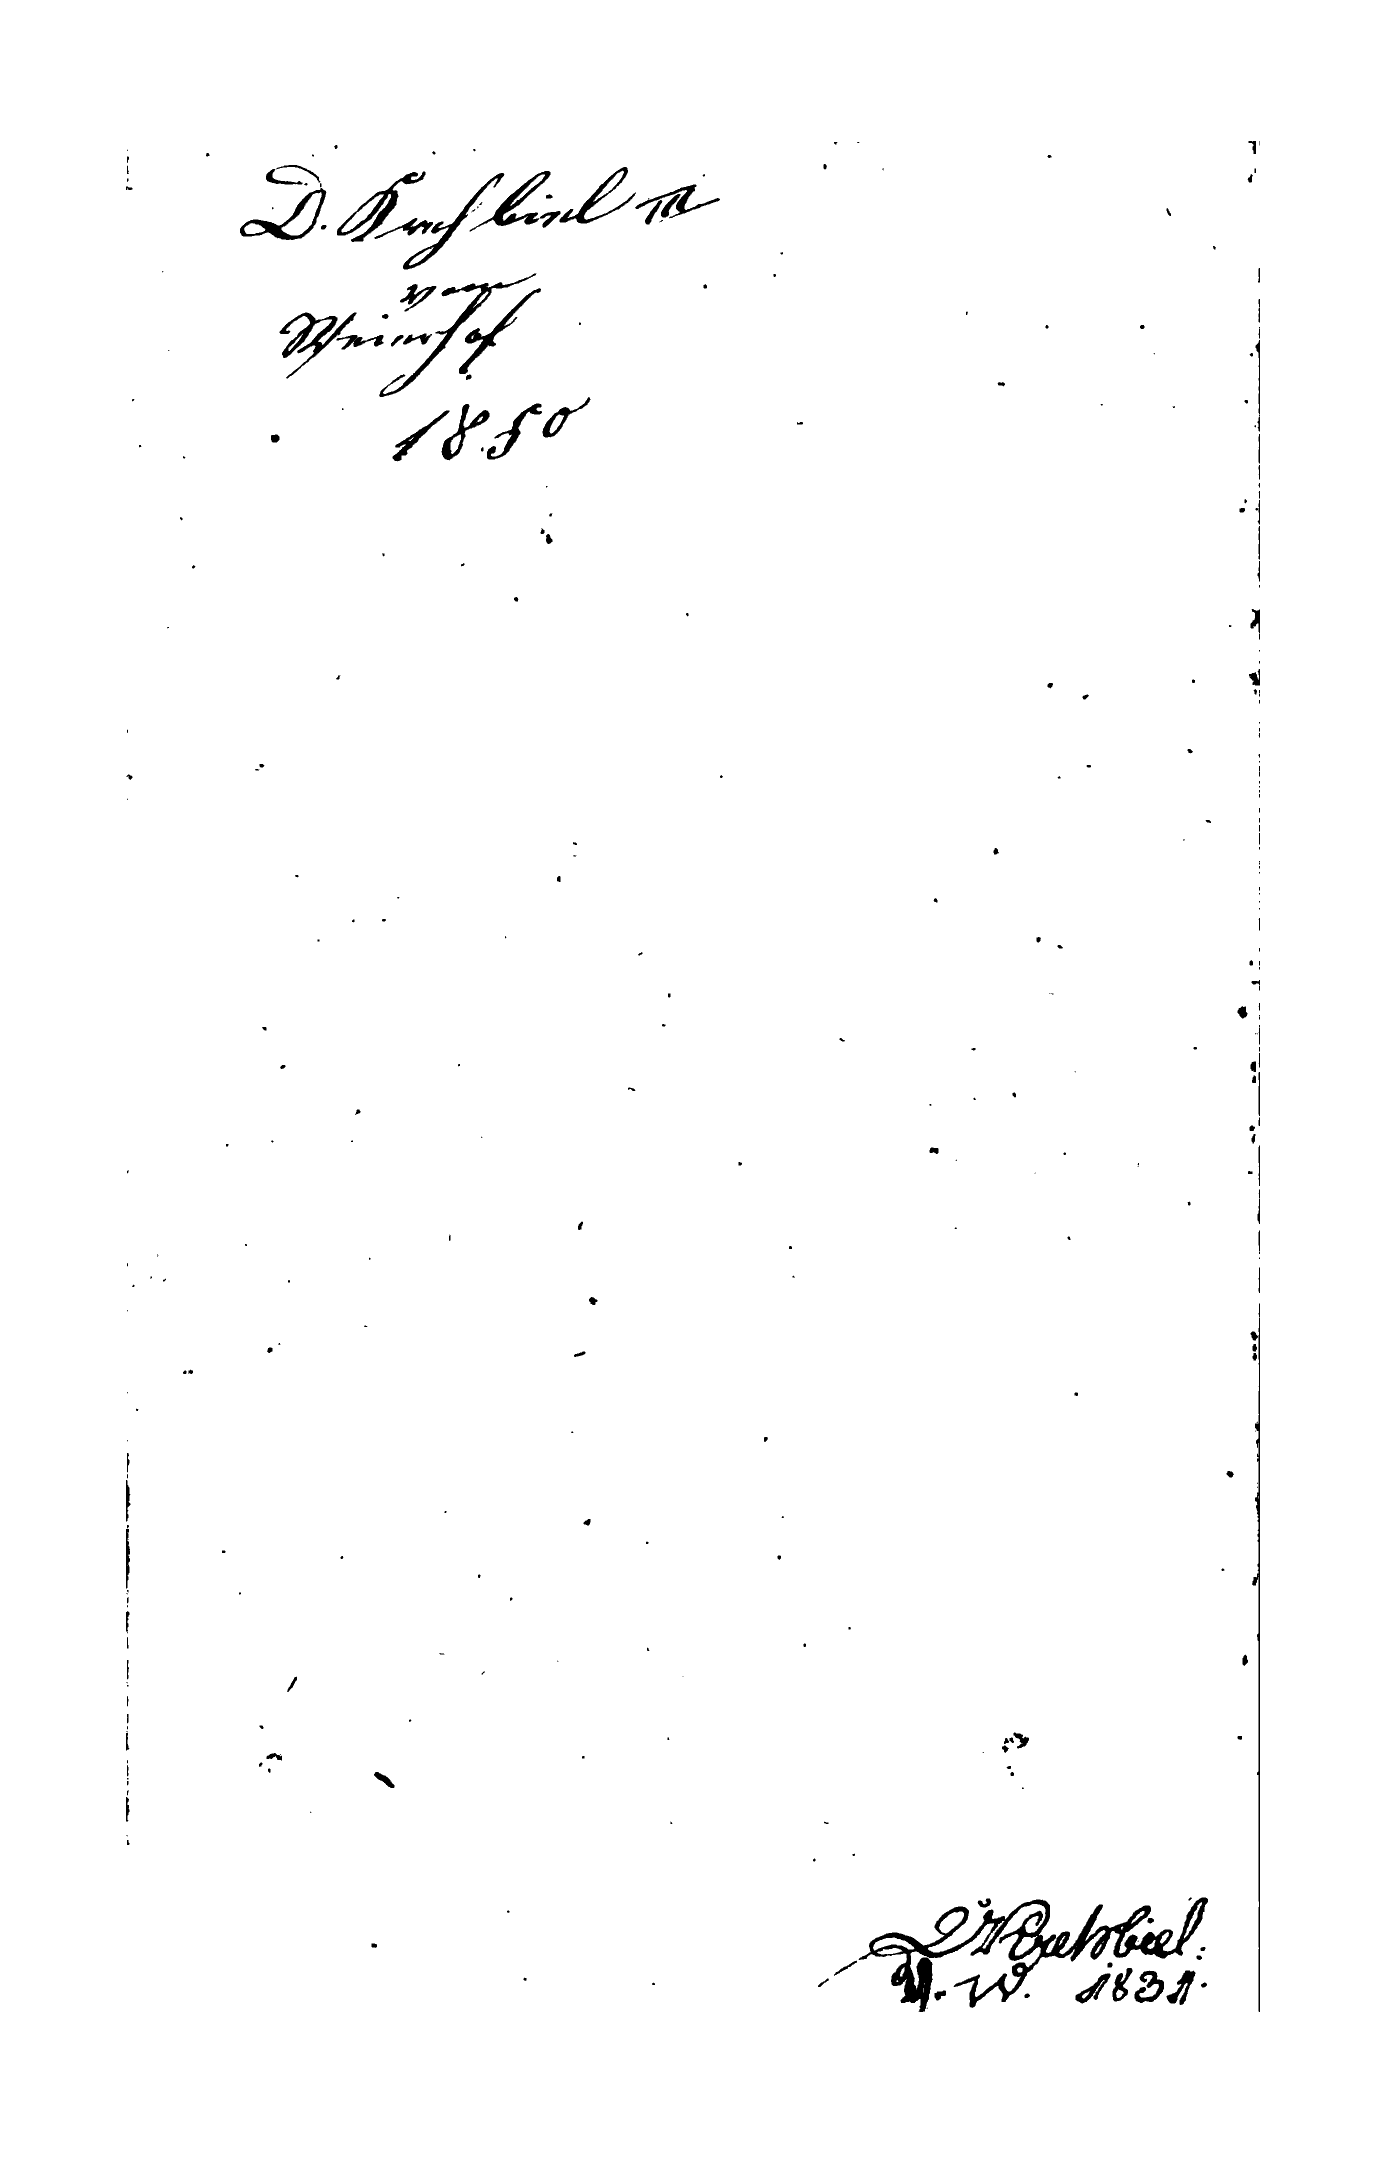 D. Krehbiel III
vom
Weierhof
1850
Krehbiel.
W. 1831.